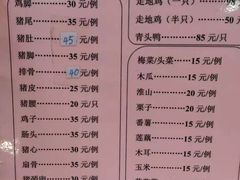 鸡脚 30 元/例
猪尾 35 元/例
猪肚 45 元/例
猪脚 35 元/例
排骨 40 元/例
猪皮 25 元/例
猪腰 20 元/例
鸡子 35 元/例
肠头 35 元/例
猪心 30 元/例
扇骨 35 元/例
走地鸡（一只）98 元
走地鸡（半只）50 元
青头鸭 85 元/只
梅菜/头菜 15 元/例
木瓜 15 元/例
淮山 15 元/例
栗子 20 元/例
番薯 15 元/例
莲藕 15 元/例
木耳 15 元/例
玉米 15 元/例